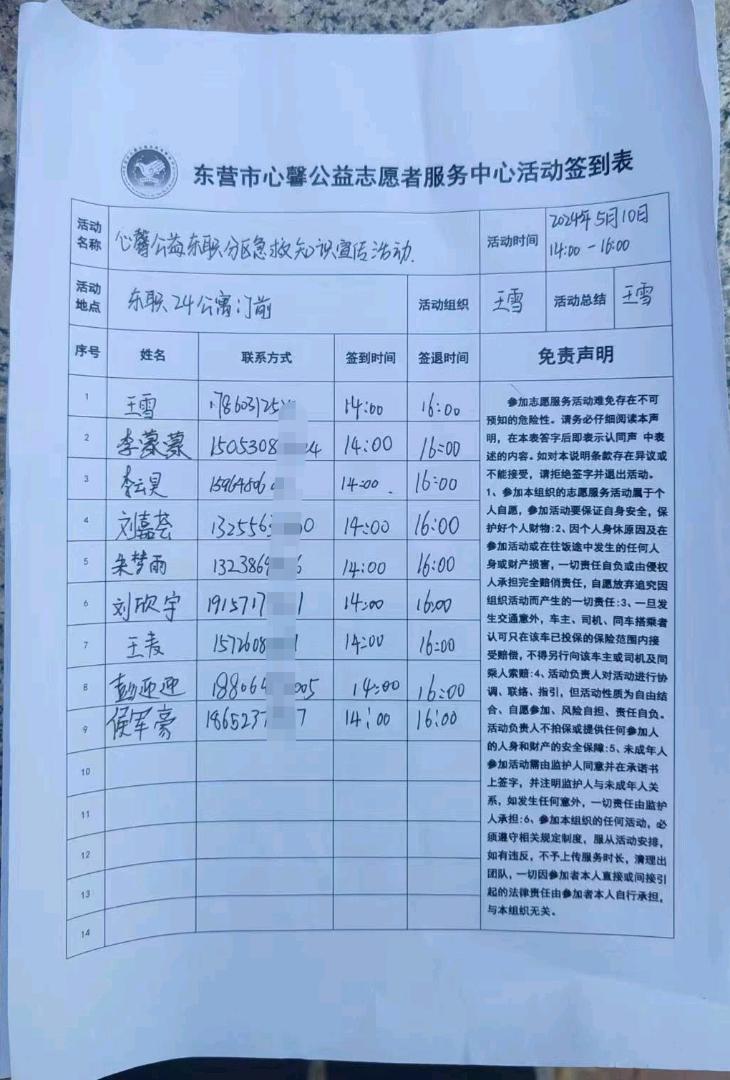 东营市心馨公益志愿者服务中心活动签到表
活动名称 心馨公益东职分区急救知识宣传活动. 活动时间 2024年5月10日 14:00-16:00
活动地点 东职24公寓门前 活动组织 王雪 活动总结 王雪
序号 姓名 联系方式 签到时间 签退时间 免责声明
1 王雪 1786031252 14:00 16:00
2 李濛濛 1505308 24 14:00 16:00
3 李云昊 159648060 14:00 16:00
4 刘嘉荟 132556 0 14:00 16:00
5 朱梦雨 1323869 6 14:00 16:00
6 刘欣宇 1915717 1 14:00 16:00
7 王麦 1572608 1 14:00 16:00
8 彭亚迎 188064 005 14:00 16:00
9 侯军豪 1865237 7 14:00 16:00
10
11
12
13
14
参加志愿服务活动难免存在不可
预知的危险性。请务必仔细阅读本声
明，在本表签字后即表示认同声 中表
述的内容。如对本说明条款存在异议或
不能接受，请拒绝签字并退出活动。
1、参加本组织的志愿服务活动属于个
人自愿，参加活动要保证自身安全，保
护好个人财物:2、因个人身休原因及在
参加活动或在往饭途中发生的任何人
身或财产损害，一切责任自负或由侵权
人承担完全赔俏责任，自愿放弃追究因
组织活动而产生的一切责任:3、一旦发
生交通意外，车主、司机、同车搭乘者
认可只在该车已投保的保险范围内接
受赔偿，不得另行向该车主或司机及同
乘人索赔:4、活动负责人对活动进行协
调、联络、指引，但活动性质为自由结
合、自愿参加、风险自担、责任自负。
活动负责人不拍保或提供任何参加人
的人身和财产的安全保障:5、未成年人
参加活动需由监护人同意并在承诺书
上签字，并注明监护人与未成年人关
系，如发生任何意外，一切责任由监护
人承担:6、参加本组织的任何活动，必
须遵守相关规定制度，服从活动安排，
如有违反，不予上传服务时长，清理出
团队，一切因参加者本人直接或间接引
起的法律责任由参加者本人自行承担，
与本组织无关。